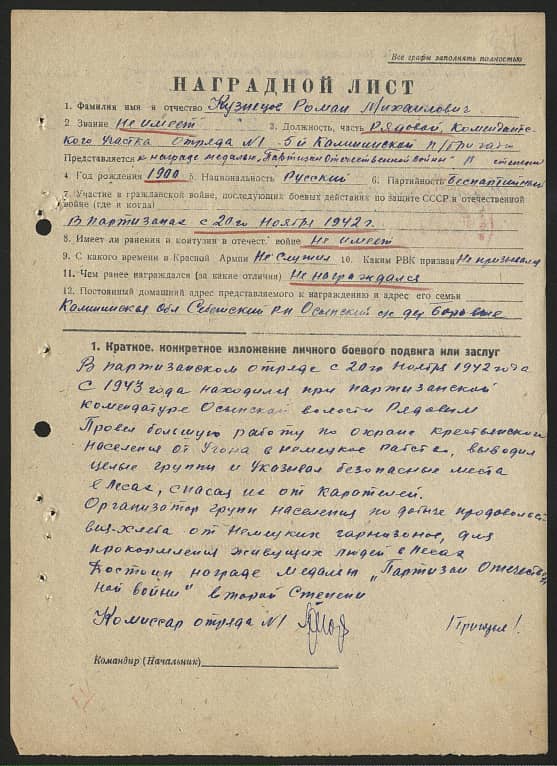 Все графы заполнять полностью
НАГРАДНОЙ ЛИСТ
1. Фамилия имя и отчество Кузнецов Роман Михайлович
2. Звание Не имеет 3. Должность, часть Рядовой, Комендатс-
кого участка Отряда №1 5й Калининской п/бригады
Представляется к награде медалью "Партизан Отечественной войны" II степени
4. Год рождения 1900 5. Национальность Русский 6. Партийность беспартийный
7. Участие в гражданской войне, последующих боевых действиях по защите СССР и отечественной
войне (где и когда)
В партизанах с 20го Ноября 1942 г.
8. Имеет ли ранения и контузии в отечест. войне Не имеет
9. С какого времени в Красной Армии Не служил 10. Каким РВК призван Не призывался
11. Чем ранее награждался (за какие отличия) Не награждался
12. Постоянный домашний адрес представляемого к награждению и адрес его семьи
Калининская обл Себежский р-н Осынский с/с дер
1. Краткое, конкретное изложение личного боевого подвига или заслуг
В партизанском отряде с 20го Ноября 1942 года
С 1943 года находился при партизанской
комендатуре Осынской волости Рядовым
Провел большую работу по охране крестьянского
Населения от Угона в немецкое рабство, выводил
целые группы и указывал безопасные места
в лесах, спасая их от карателей.
Организатор групп населения по добыче продовольст
вия-хлеба от Немецких гарнизонов, для
прокормления живущих людей в лесах
Достоин награде медалью „Партизан Отечествен
ной войны" второй Степени
Комиссар отряда №1
Командир (Начальник)